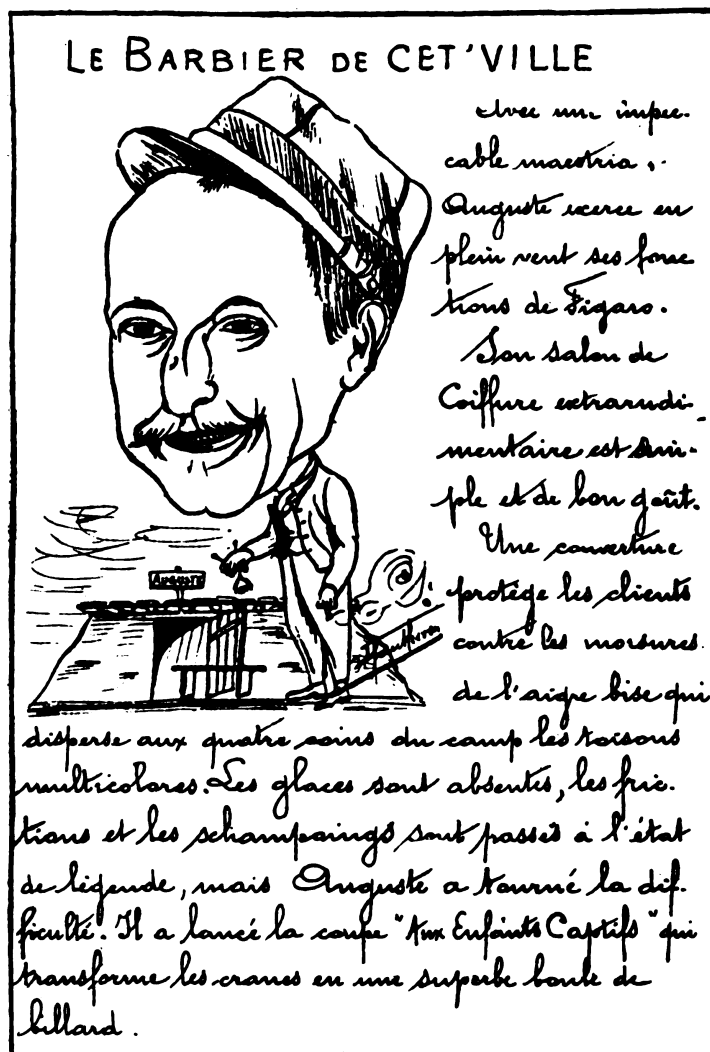 LE BARBIER DE CET'VILLE
Avec une impec-
cable maestria,
Auguste exerce en
plein vent ses fonc
tions de Figaro.
Son salon de
Coiffure extrarudi-
mentaire est sim-
ple et de bon goût.
Une couverture
protège les clients
contre les morsures
de l'aigre bise qui
disperse aux quatre coins du camp les toisons
multicolores. Les glaces sont absentes, les fric-
tions et les schampoings sont passés à l'état
de légende, mais Auguste a tourné la dif-
ficulté. Il a lancé la coupe "Aux Enfants Captifs" qui
transforme les cranes en une superbe boule de
billard.
AUGUSTE